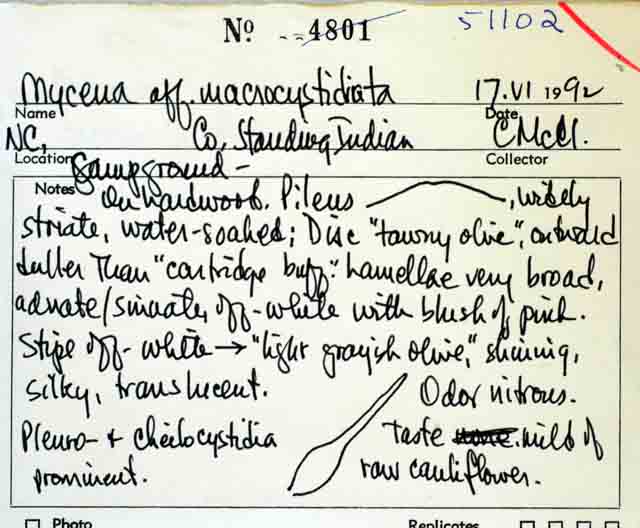 No --4801 51102
Mycena aff. macrocystidiata 17.VI 1992
Name Date
NC, Co, Standing Indian CMcCl.
Location Campground - Collector
Notes On hardwood. Pileus , widely
striate, water-soaked; Disc "tawny olive", outward
duller than "cartridge buff". Lamellae very broad,
adnate/sinuate, off-white with blush of pink.
Stipe off-white → "light grayish olive," shining,
silky, translucent. Odor nitrous.
Pleuro- + cheilocystidia Taste none. mild of
prominent. raw cauliflower.
Photo Replicates